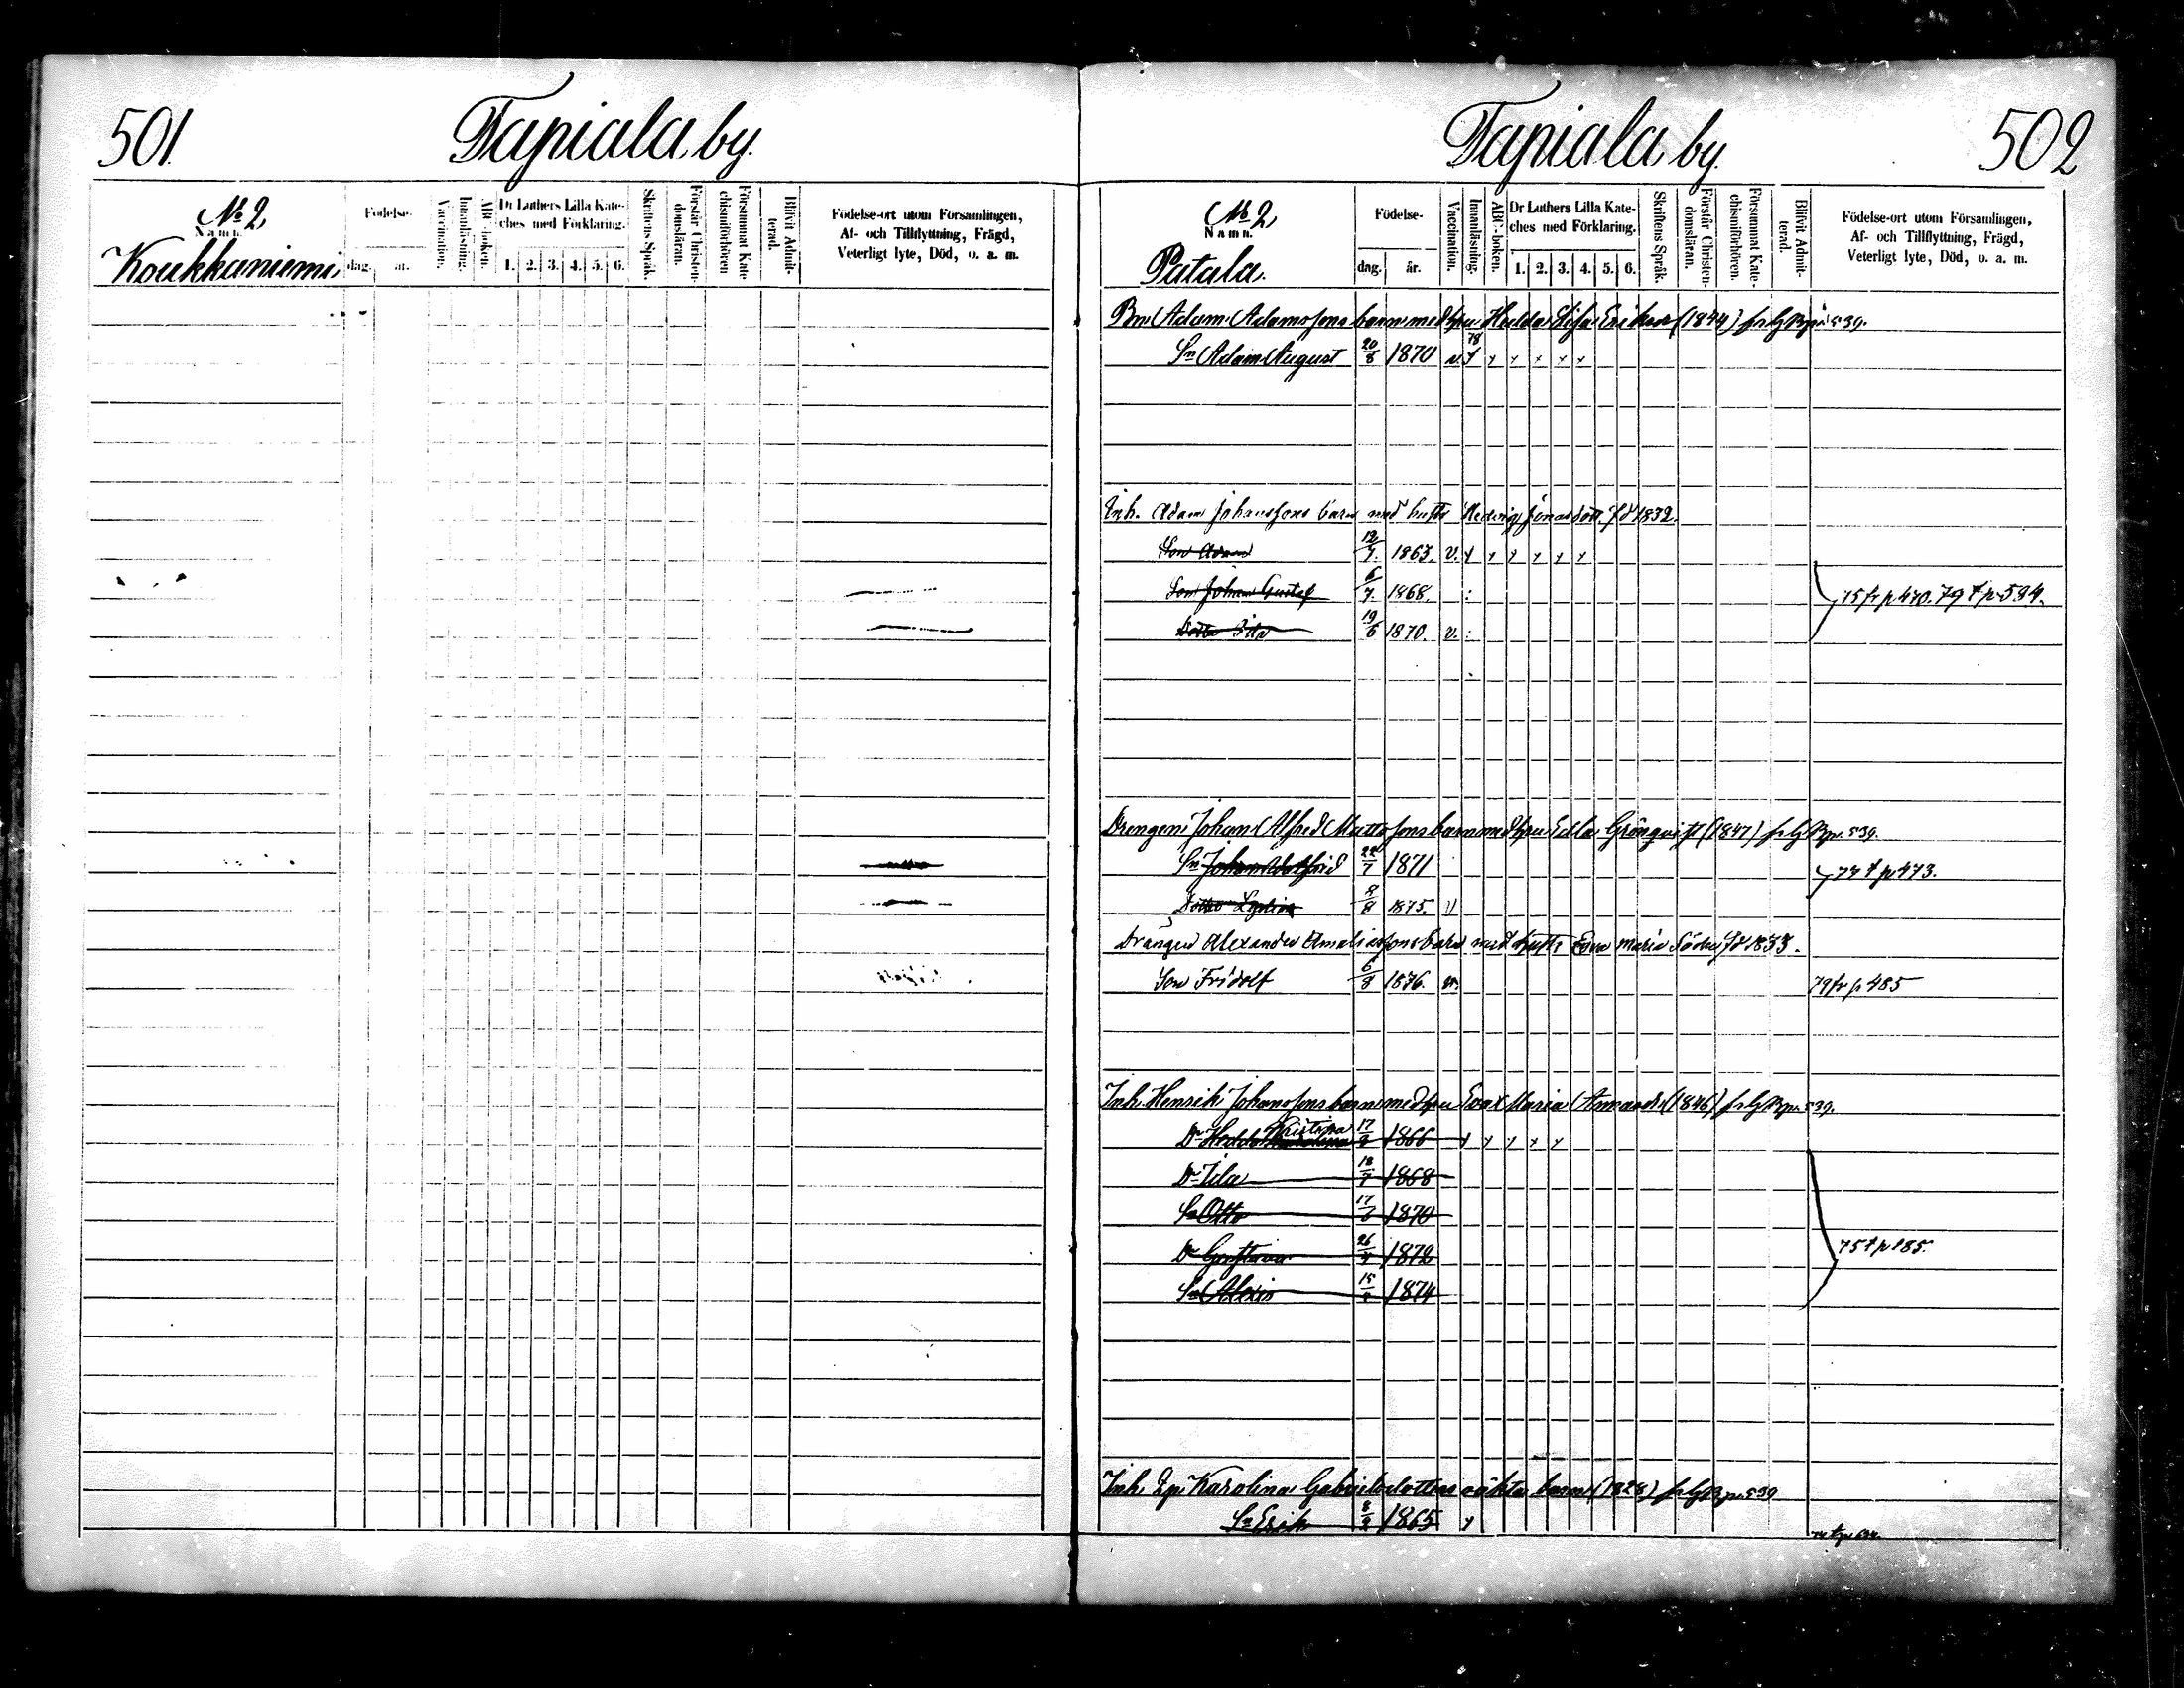 501.
Tapiala by.
No 2,
Namn.
Koukkuniemi
Födelse-
dag. år.
Vaccination.
Innanläsning.
ABC-boken.
Dr Luthers Lilla Kate-
ches med Förklaring.
1. 2. 3. 4. 5. 6.
Skriftens Språk.
Förstår Christen-
domsläran.
Försummat Kate-
chismiförhören
Blifvit Admit-
terad.
Födelse-ort utom Församlingen,
Af- och Tillflyttning, Frägd,
Veterligt lyte, Död, o. a. m.
Tapiala by.
502
No 2,
Namn.
Patala.
Födelse-
dag. år.
Vaccination.
Innanläsning.
ABC-boken.
Dr Luthers Lilla Kate-
ches med Förklaring.
1. 2. 3. 4. 5. 6.
Skriftens Språk.
Förstår Christen-
domsläran.
Försummat Kate-
chismiförhören.
Blifvit Admit-
terad.
Födelse-ort utom Församlingen,
Af- och Tillflyttning, Frägd,
Veterligt lyte, Död, o. a. m.
Bn Adam Adamssons barn med hu Hedda Lisa Eriksdr (1844) 539.
Sn Adam August 20/8 1870 v. 78 y y y y y y
Inh. Adam Johanssons barn med hustr Hedvig Jonasdott. fd 1832.
Son Adam 12/7. 1863. v. y y y y y y
Son Johan Gustaf 6/7. 1868. 75 fr p 470. 79 t p 534.
Dotter Ida 19/6 1870. v.
Drengen Johan Alfred Mattssons barn med hu Edla Grönqvist (1847) 539.
Sn Johan Walfrid 22/7 1871 77 t p 473.
Dotter 8/8 1875. v
Drängen Alexander Amaliassons barn med hustr Eva Maria Söder fd 1853.
Son Fridolf 6/8 1876. v. 79 fr p 485
Inh. Henrik Johanssons barn med hu Eva Maria Amandsr (1846) 539.
Dr Hedda Kristina 17/2 1866 y y y y y
Dr Ida 18/7 1868
Sn Otto 17/3 1870
Dr Gustava 26/4 1872
75 t p 185.
Sn Alexis 15/ 1874
Inh. Karolina Gabrielsdotters oäkta barn (1828) 539
Sn Erik 8/2 1865 y